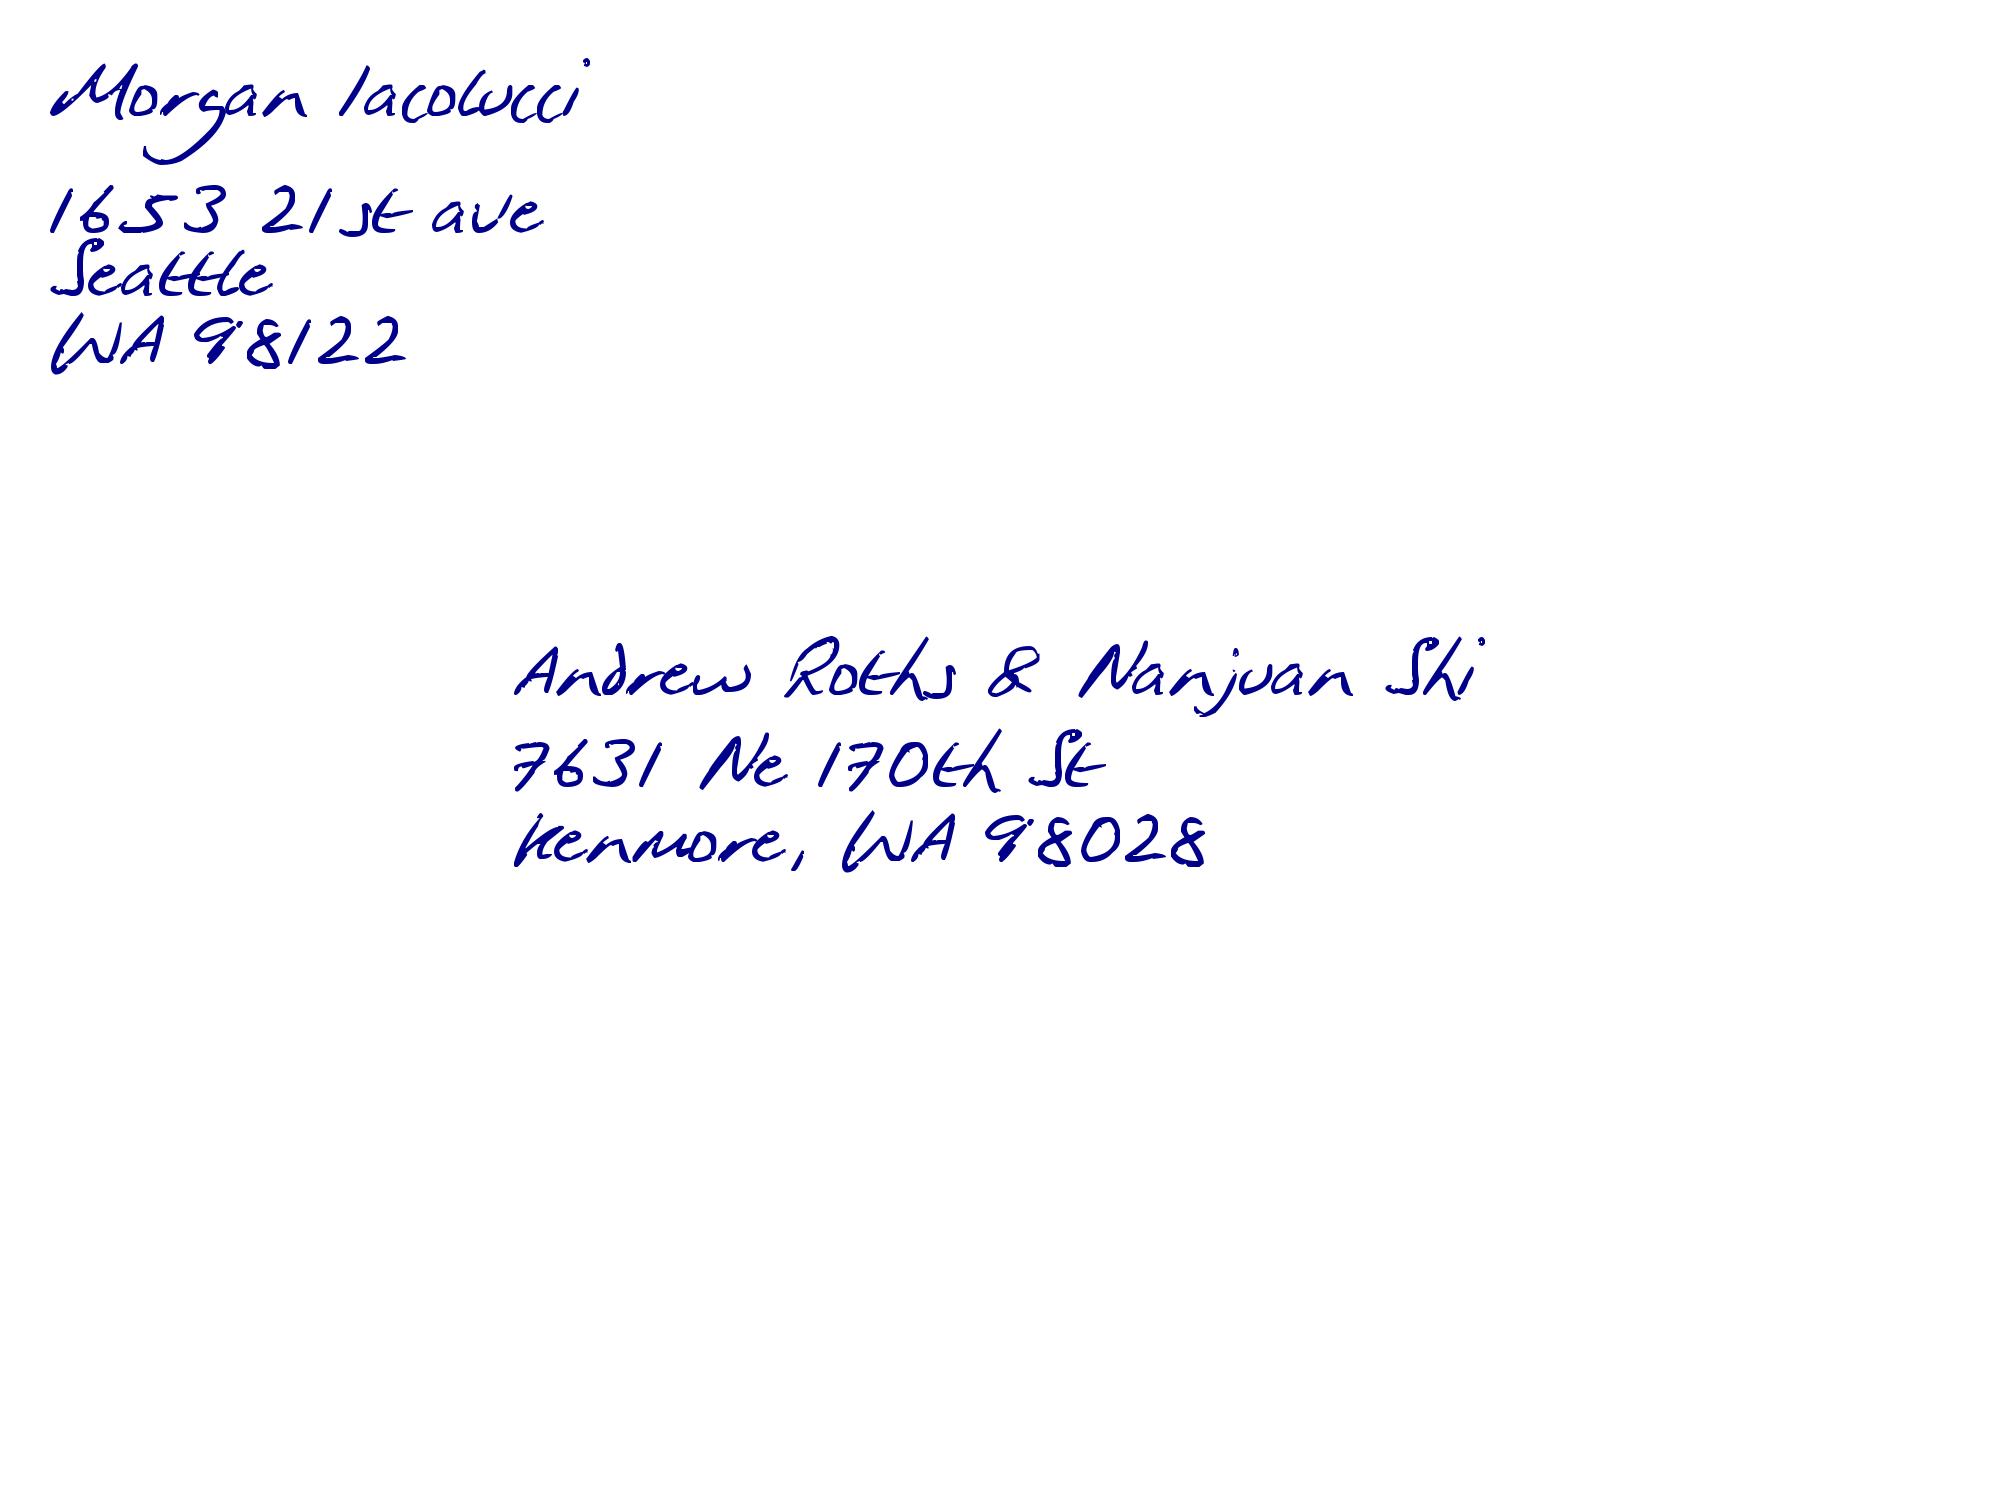 Morgan Iacolucci
1653 21st ave
Seattle
WA 98122
Andrew Roths & Nanjuan Shi
7631 Ne 170th St
Kenmore, WA 98028